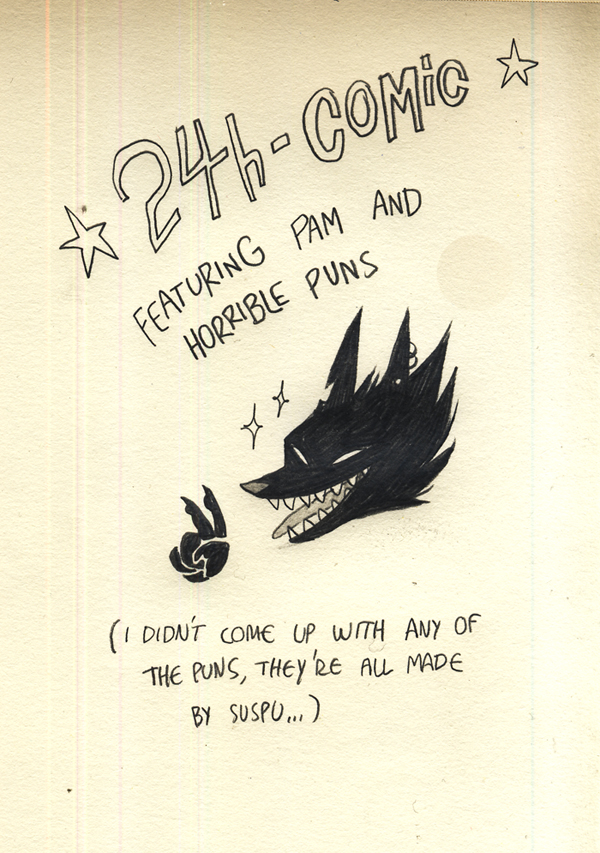 24h-COMiC
FEATURING PAM AND
HORRIBLE PUNS
(I DIDN'T COME UP WITH ANY OF
THE PUNS, THEY'RE ALL MADE
BY SUSPU...)